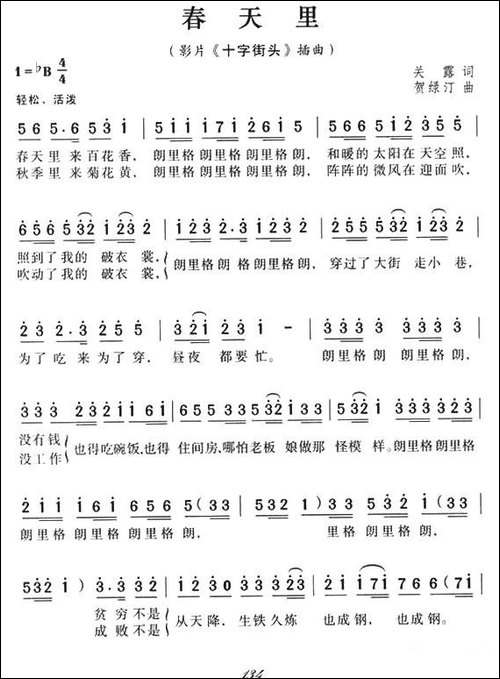 春天里
（影片《十字街头》插曲）
1=♭B 4/4
关露 词
轻松、活泼
贺绿汀 曲
5 6 5. 6 5 3 1 | 5 1 1 1 7 1 2 6 1 5 | 5 6 5 1 2 3 5 5 |
春天里 来百花香， 朗里格朗里格朗里格朗， 和暖的太阳在天空照，
秋季里 来菊花黄， 朗里格朗里格朗里格朗， 阵阵的微风在迎面吹，
6 5 6 5 5 3 2 1 2 3 2 | 1 2 3 2. 3 1 2 3 2 | 5 5 5 3 2 3 3 2 1 2 |
照到了我的 破衣 裳，
吹动了我的 破衣 裳，
朗里格朗格朗里格朗， 穿过了大街 走小巷，
2 3 2. 3 2 5 5 | 3 2 1 2 3 1 - | 3 3 3 3 3 3 3 3 |
为了吃 来为了穿， 昼夜 都要 忙。 朗里格朗 朗里格朗，
3 3 3 2 3 2 1 1 6 1 | 6 5 5 3 5 5 5 3 2 1 3 3 | 5 3 2 1 3 3 3 3 3 3 |
没有钱
没工作
也得吃碗饭,也得 住间房,哪怕老板 娘做那 怪模样。朗里格朗里格
2 1 1 1 6 1 6 5 | 5 6 1 6 5 5(3 3 | 5 3 2 1) 3 3 2 1(3 3 |
朗里格朗里格朗里格朗， 朗里格朗里格朗， 里格朗里格朗，
5 3 2 1) 3. 3 3 2 | 1 2 3 0 3 3 3 2 3 2 | 2 1 1 7 1 7 6(7 1 |
贫穷不是
成败不是
从天降， 生铁久炼 也成钢， 也成钢。
134